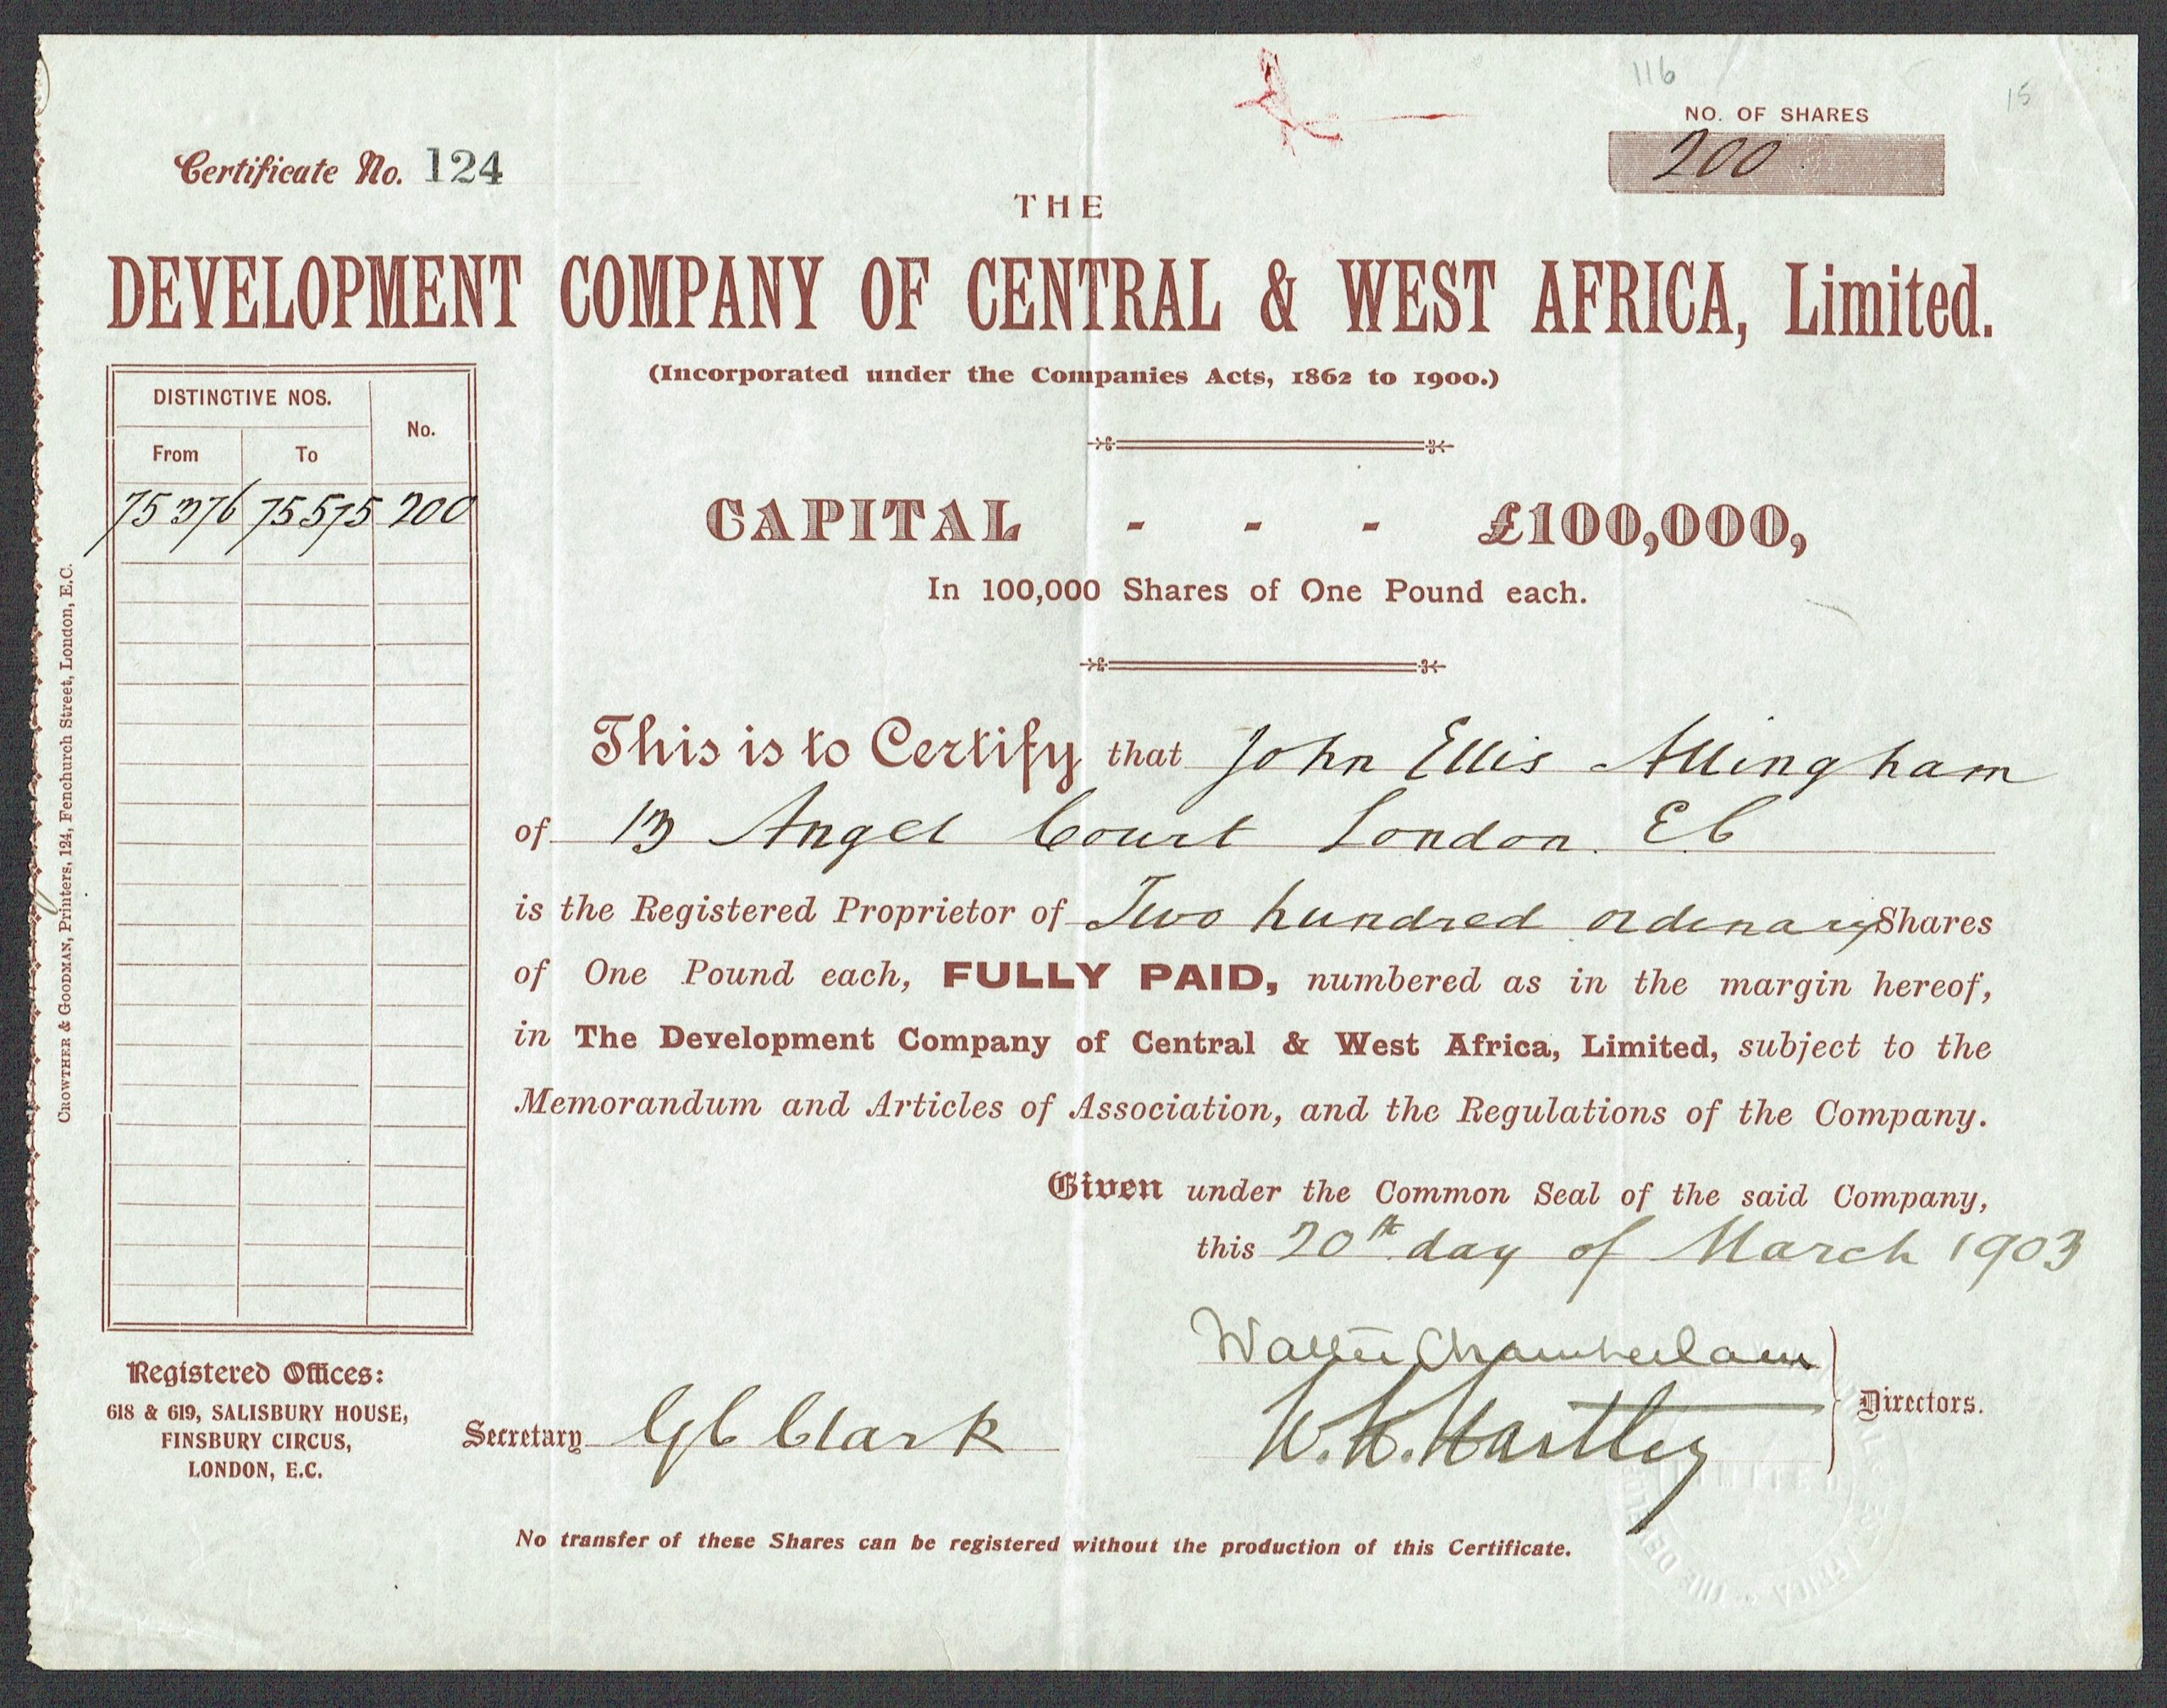 116
15
NO. OF SHARES
200
Certificate No. 124
THE
DEVELOPMENT COMPANY OF CENTRAL & WEST AFRICA, Limited.
(Incorporated under the Companies Acts, 1862 to 1900.)
DISTINCTIVE NOS.
No.
From To
75376 75575 200
CAPITAL - - - £100,000,
In 100,000 Shares of One Pound each.
This is to Certify that John Ellis Allingham
of 13 Angel Court London. E.C
is the Registered Proprietor of Two hundred ordinary Shares
of One Pound each, FULLY PAID, numbered as in the margin hereof,
in The Development Company of Central & West Africa, Limited, subject to the
Memorandum and Articles of Association, and the Regulations of the Company.
Given under the Common Seal of the said Company,
this 20th day of March 1903
Walter Chamberlain
W. H. Hartley
Directors.
Secretary G C Clark
Registered Offices:
618 & 619, SALISBURY HOUSE,
FINSBURY CIRCUS,
LONDON, E.C.
No transfer of these Shares can be registered without the production of this Certificate.
CROWTHER & GOODMAN, Printers, 124, Fenchurch Street, London, E.C.
LIMITED